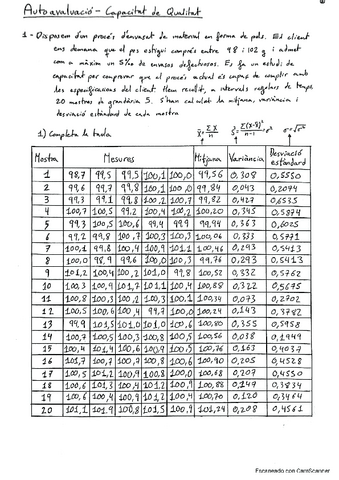 Autoavaluació - Capacitat de Qualitat
1 - Disposem d'un procés d'envasat de material en forma de pols. El client
ens demana que el pes estigui comprès entre 98 i 102 g i admet
com a màxim un 5‰ de envasos defectuosos. Es fa un estudi de
capacitat per comprovar que el procés actual és capaç de complir amb
les especificacions del client. Hem recollit, a intervals regulars de temps,
20 mostres de grandària 5. S'han calculat la mitjana, variància i
desviació estàndard de cada mostra
1) Completa la taula
Mostra Mesures Mitjana Variància Desviació estàndard
1 98,7 99,5 99,5 100,1 100,0 99,56 0,308 0,5550
2 99,6 99,7 99,8 100,1 100,0 99,84 0,043 0,2074
3 99,3 99,1 99,8 100,2 100,7 99,82 0,427 0,6535
4 100,7 100,5 99,2 100,4 100,2 100,20 0,345 0,5874
5 99,3 100,5 100,6 99,4 99,9 99,94 0,363 0,6025
6 99,2 99,8 100,7 100,3 100,3 100,06 0,333 0,5771
7 100,1 99,8 100,4 100,9 101,1 100,46 0,293 0,5413
8 100,0 98,9 99,6 100,0 100,3 99,76 0,293 0,5413
9 101,2 100,4 100,2 101,0 99,8 100,52 0,332 0,5762
10 100,3 100,9 101,7 101,1 100,4 100,88 0,322 0,5675
11 100,8 100,3 100,2 100,3 100,1 100,34 0,073 0,2702
12 100,5 100,6 100,4 99,7 100,0 100,24 0,143 0,3782
13 99,9 101,5 101,0 101,0 100,6 100,80 0,355 0,5958
14 100,7 100,5 100,3 100,8 100,5 100,56 0,038 0,1949
15 100,4 101,4 100,6 100,9 100,5 100,76 0,163 0,4037
16 101,7 100,7 100,7 100,8 100,6 100,90 0,205 0,4528
17 100,5 101,2 100,9 100,8 100,0 100,68 0,207 0,4550
18 100,6 101,3 100,4 101,2 100,9 100,88 0,147 0,3834
19 100,6 100,4 100,9 101,2 100,4 100,70 0,120 0,3464
20 101,1 101,9 100,8 101,5 100,9 101,24 0,208 0,4561
Escaneado con CamScanner